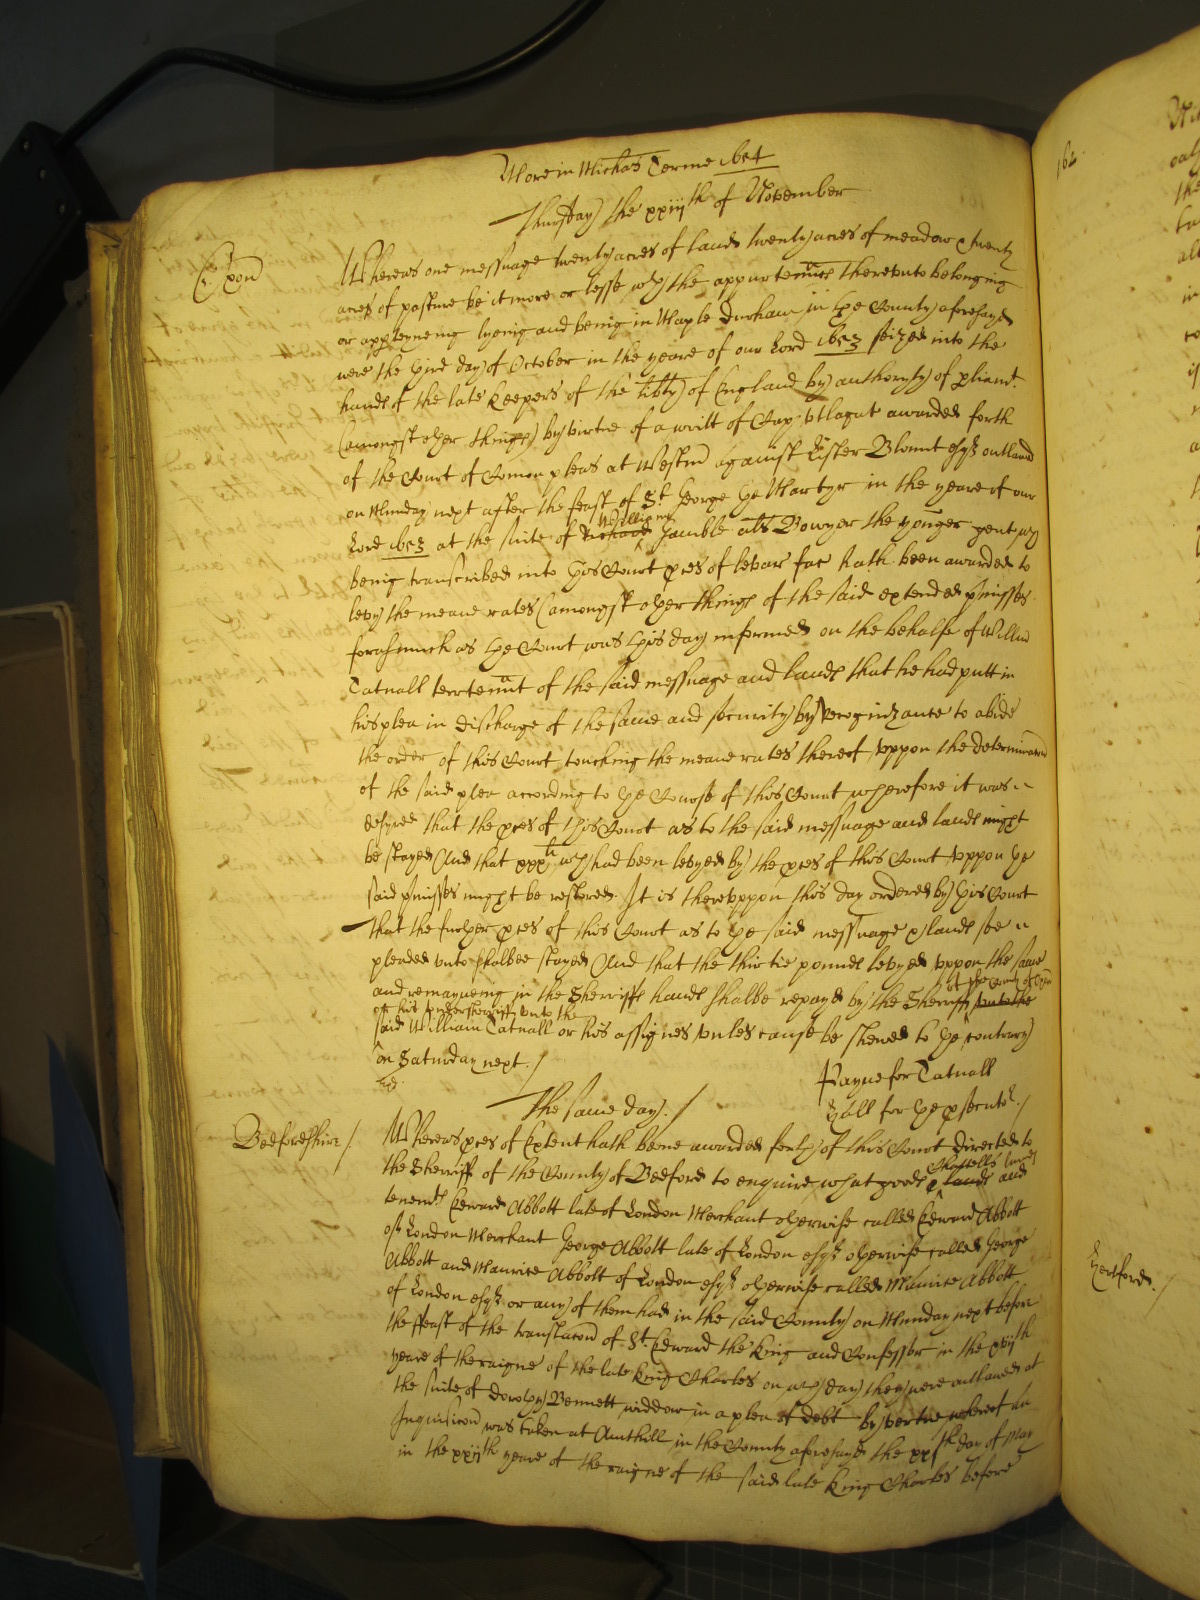 More in Michas Terme 1654
Thursday the xxiijth of November
Oxon
Whereas one messuage twenty acres of land twenty acres of meadow & twenty
acres of pasture be it more or lesse wth the appurtennces thereunto belonging
or apperteyneing lyeing and being in Maple Durham in the County aforesayd
were the third day of October in the yeare of our Lord 1653 seized into the
hands of the late Keepers of the libty of England by authoryty of pliamt.
(amongst other things) by virtue of a writt of Cap. utlagat awarded forth
of the Court of Comon pleas at Westm against Lister Blount esqr outlawed
on Munday next after the feast of St. George the Martyr in the yeare of our
Lord 1653 at the suite of Richard William Gamble als Bowyer the yonger gent wch
being transcribed into this Court pces of levar fac hath been awarded to
levy the meane rates (amongst other things of the said extended pmisses.
forasmuch as the Court was this day informed on the behalfe of Willm
Tatnall terrtennt of the said messuage and lands that he had putt in
his plea in discharge of the same and security by recognizance to abide
the order of this Court touching the meane rates thereof uppon the determinacon
of the said plea according to the Course of this Court wherefore it was
desyred that the pces of this Court as to the said messuage and lands might
be stayed And that xxxli wch had been levyed by the pces of this Court uppon the
said pmisses might be restored. It is thereuppon this day ordered by this Court
that the further pces of this Court as to the said messuage & lands soe
pleaded unto shalbee stayed And that the thirtie pounds levyed uppon the same
and remayneing in the Sherriffs hands shalbe repayd by the Sherriff of the County of Oxon unto the
or his undersherriff unto the
said William Tatnall or his assignes unles cause be shewed to the contrary
on Saturday next. /
Payne for Tatnall
Hall for the psecutor. /
The same day. /
Bedfordshire /
Whereas pces of Extent hath beene awarded forth of this Court directed to
the Sherriff of the County of Bedford to enquire what goods Chattells lands & lands and
tenemts Edward Abbott late of London Merchant otherwise called Edward Abbott
of London Merchant George Abbott late of London esqr otherwise called George
Abbott and Maurice Abbott of London esqr otherwise called Maurice Abbott
of London esqr or any of them had in the said County on Munday next before
the ffeast of the translacon of St. Edward the King and Confessor in the xviijth
yeare of the raigne of the late King Charles on wch day they were outlawed at
the suite of Dorothy Bennett widdow in a plea of debt by vertue whereof an
Inquisicon was taken at Ampthill in the County aforesayd the xxjth day of May
in the xxijth yeare of the raigne of the said late King Charles before
162
Hertford. /